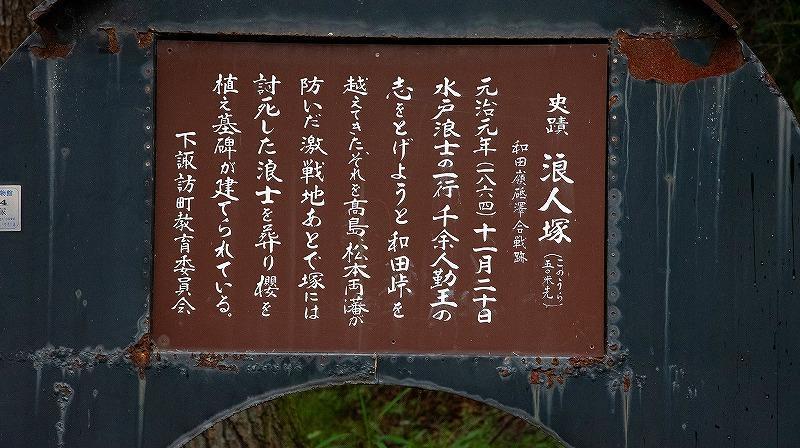 史蹟 浪人塚
(このうら
五〇米先)
和田嶺砥澤合戰跡
元治元年(一八六四)十一月二十日
水戸浪士の一行千余人勤王の
志をとげようと和田峠を
越えてきた。それを高島、松本両藩が
防いだ激戦地あとで塚には
討死した浪士を葬り櫻を
植え墓碑が建てられている。
下諏訪町教育委員会